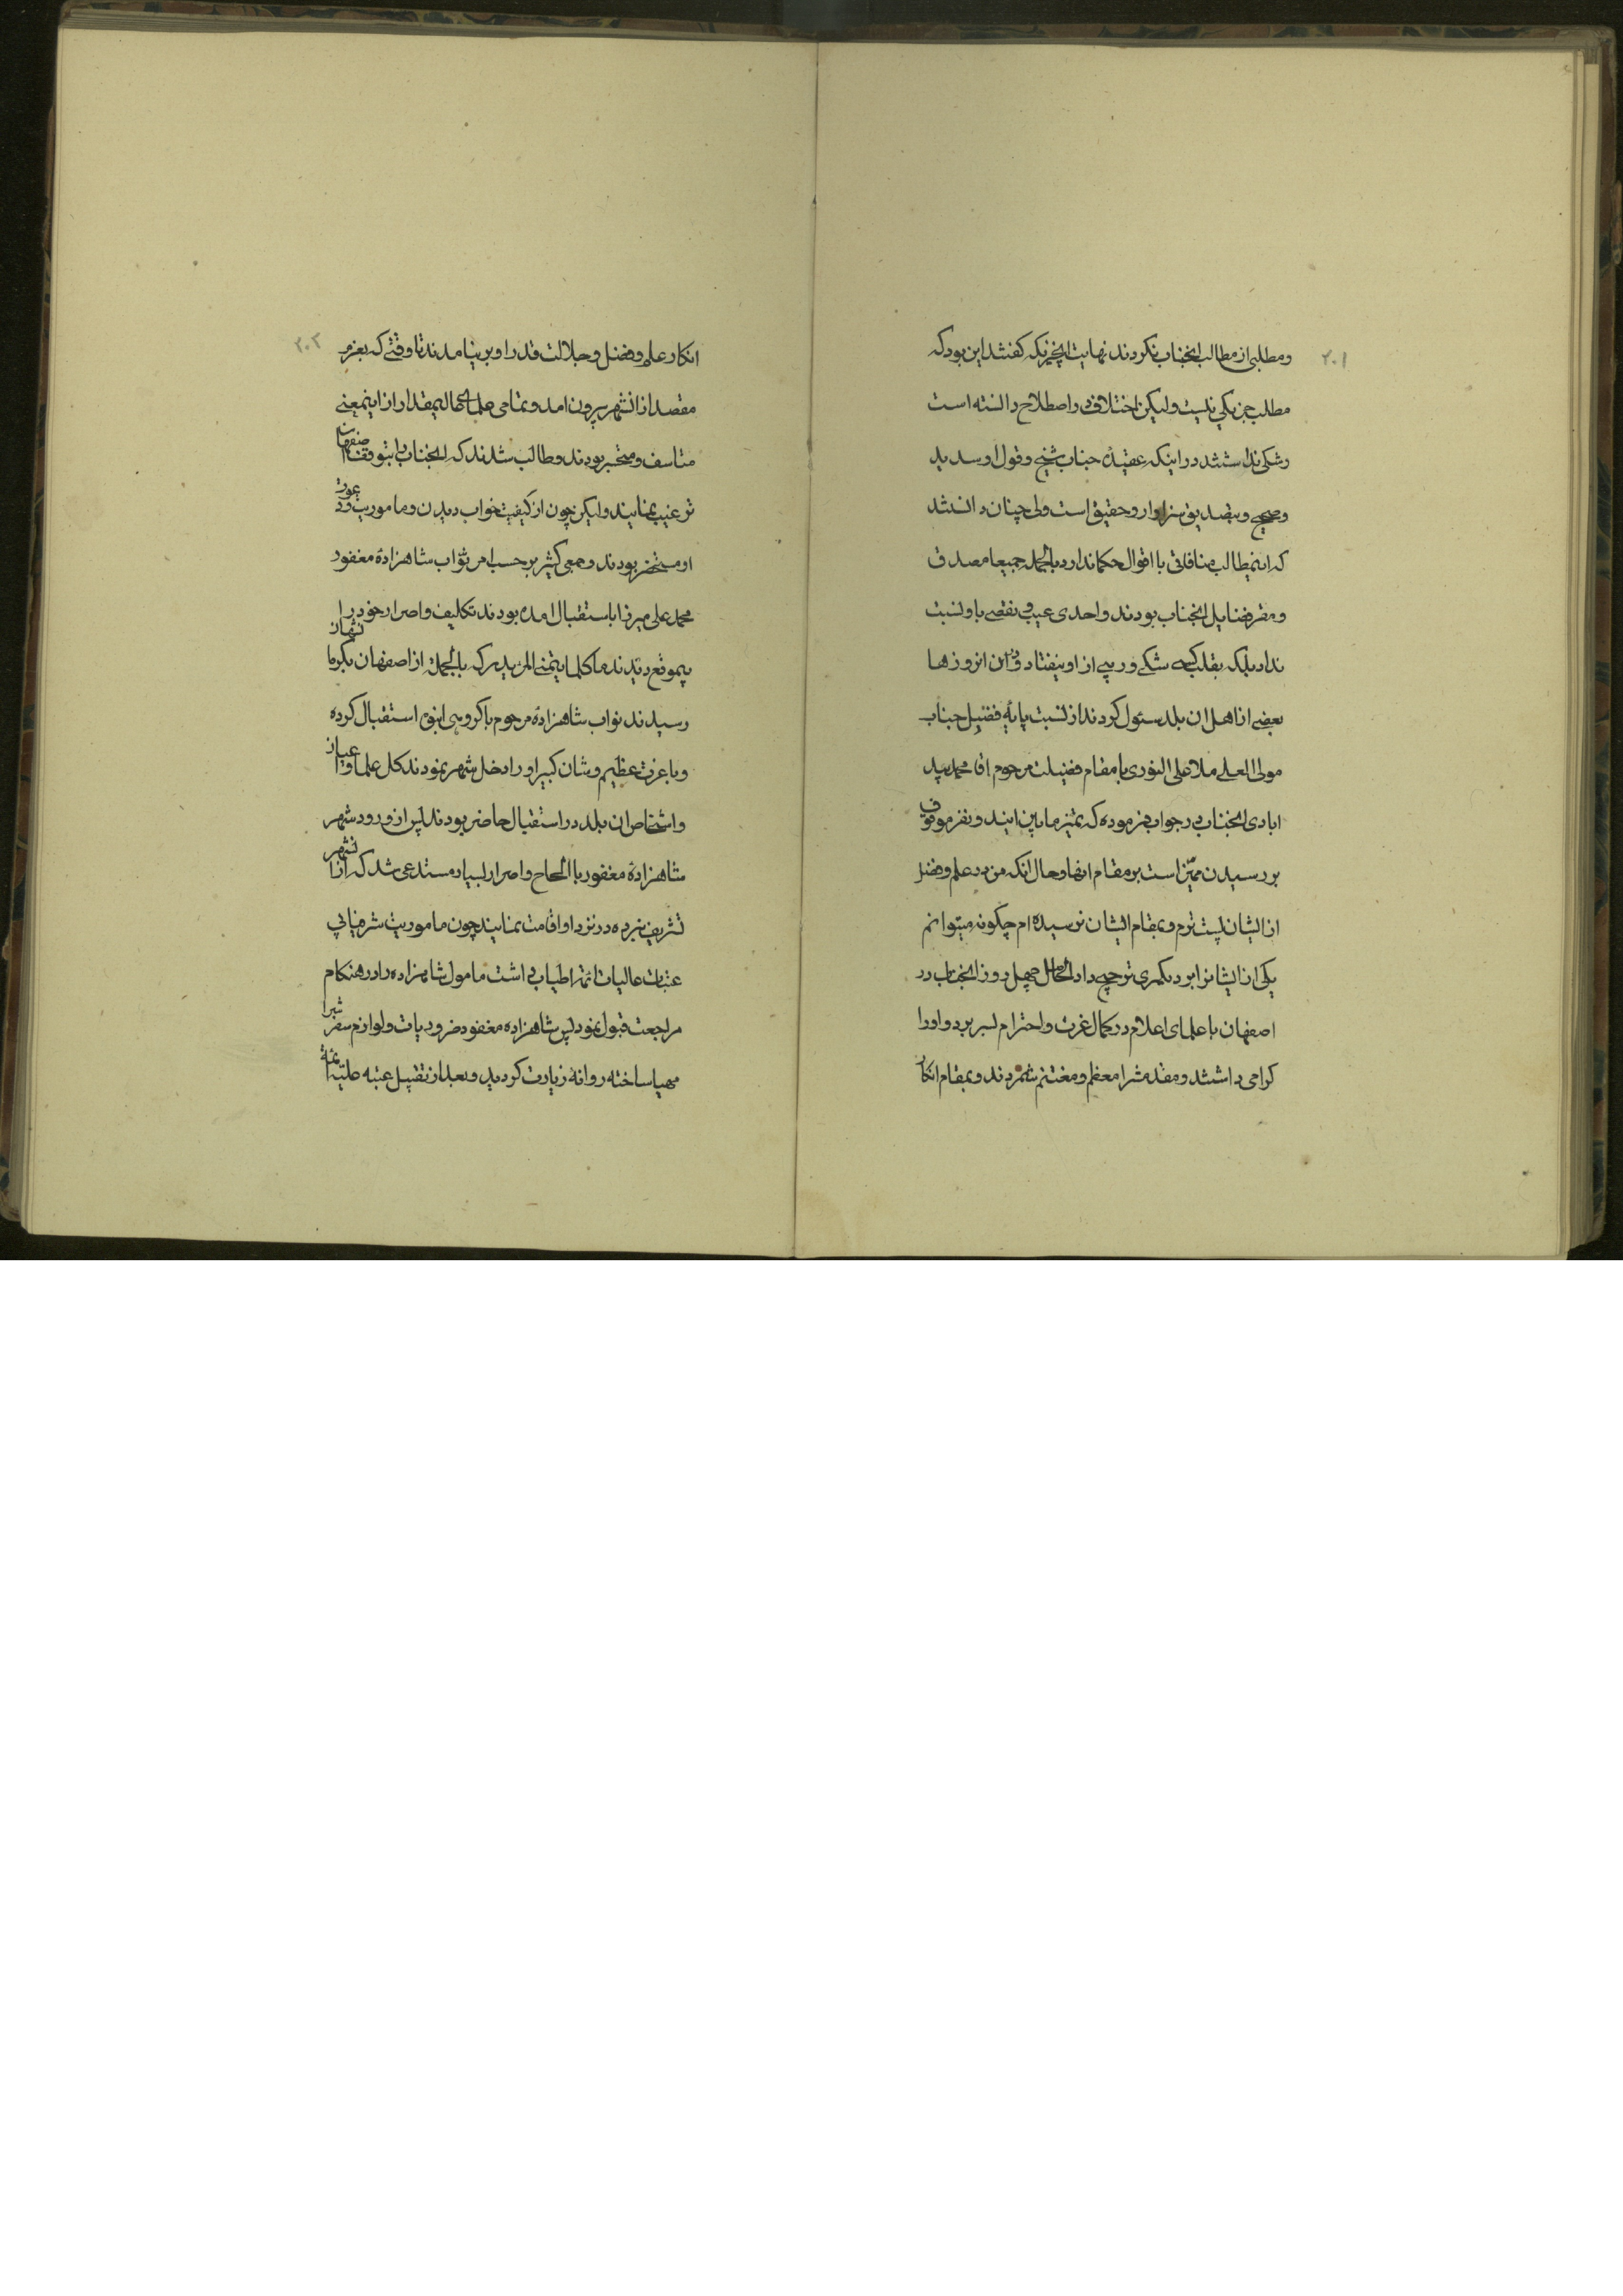 ۲۰۱
ومطلبی از مطالب انجناب نکردند نهایت انچیزیکه کفتند این بود که
مطلب جز یکی نیست ولیکن اختلاف در اصطلاح دانسته است
و شکی نداشتند در اینکه عقیده جناب شیخ و قول او سدید
وصحیح و بتصدیق سزاوار و حقیق است ولی چنان دانستند
که اینمطالب منافاتی با اقوال حکما ندارد بالجمله جمیعا مصدق
ومقر فضایل انجناب بودند واحدی عیب و نقصی باو نسبت
نداد بلکه بقلب کسی شکی و ریبی از او نیفتاد و در ان انروزها
بعضی از اهل ان بلد سئول کردند از نسبت پایه فضیل جناب
مولی العلی ملا علی النوری با مقام فضیلت مرحوم اقا محمد بید
ابادی انجناب در جواب فرموده که تمیز مابین ایند و نفر موقوف
بررسیدن ممیز است بر مقام انها و حال انکه من در علم و فضل
از ایشان پست ترم و بمقام ایشان نرسیده ام چکونه میتوانم
یکی از ایشانرا بر دیکری ترجیح داد الحاصل چهل روز انجناب در
اصفهان با علمای اعلام در کمال عزت و احترام بسر برد و او را
کرامی داشتند و مقدمش را معظم و مغتنم شمردند و بمقام انکار
۲۰۲
انکار علم و فضل و جلالت قدر او بر نیامدند تا وقتی که بعزم
مقصد از انشهر بیرون امد و تمامی علمای عالیمقدار از اینمعنی
متاسف و متحیر بودند و طالب شدند که انجناب را بتوقف اصفهان
ترغیب نمایند ولیکن چون از کیفیت خواب دیدن و ماموریت و دعوت
او مستحضر بودند و جمعی کثیر بر حسب امر نواب شاهزاده مغفور
محمد علی میرزا باستقبال امده بودند تکلیف و اصرار خود را
بیموقع دیدند ما کلما یتمنی المرء یدرکه بالجمله از اصفهان بکرمانشهان
رسیدند نواب شاهزاده مرحوم با کروهی انبوه استقبال کرده
وبا عزت عظیم و شان کبیر او را داخل شهر نمودند کل علما و اعیان
و اشخاص ان بلد در استقبال حاضر بودند پس از ورود شهر
شاهزاده مغفور با الحاح و اصرار بسیار مستدعی شد که از انشهر
تشریف نبرده در نزد او اقامت نمایند چون ماموریت شرفیابی
عتبات عالیات ائمه اطیاب داشت مامول شاهزاده را در هنکام
مراجعت قبول نمود پس شاهزاده مغفور ضروریات و لوازم سفرشرا
مهیا ساخته روانه زیارت کردید و بعد از تقبیل عتبه علیه ائمه